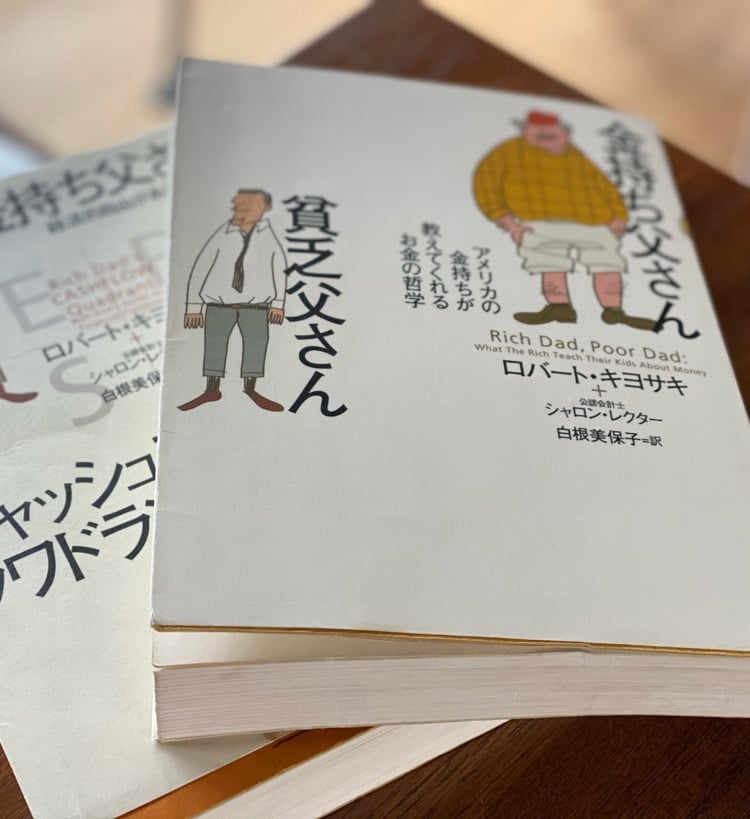 金持ち父さん
貧乏父さん
アメリカの
金持ちが
教えてくれる
お金の哲学
Rich Dad, Poor Dad:
What The Rich Teach Their Kids About Money
ロバート・キヨサキ
+
公認会計士
シャロン・レクター
白根美保子=訳
持ち父さ
E
Rich Dad's
CASHFLOW
Quadrant
ロバート・キヨ
+
公認会計士
シャロン・レ
白根美保
S
ャッシュ
ワドラ